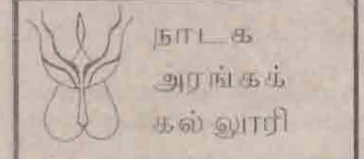 நாடக
அரங்கக்
கல் லூரி